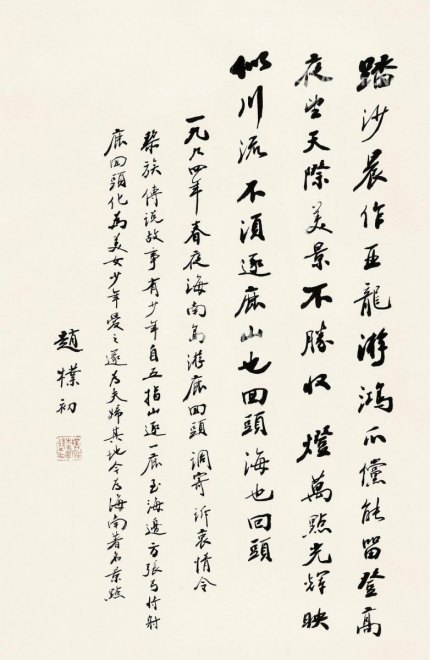 踏沙晨作亚龍游鴻爪儻能留登高
夜坐天際美景不勝收燈萬點光輝映
似川流不須逐鹿山也回頭海也回頭
一九九四年春夜海南島游鹿回頭調寄訴衷情令
黎族傳說故事有少年自五指山逐一鹿至海邊方張弓忖射
鹿回頭化為美女少年愛之遂為夫婦其地今為海南著名景點
趙樸初